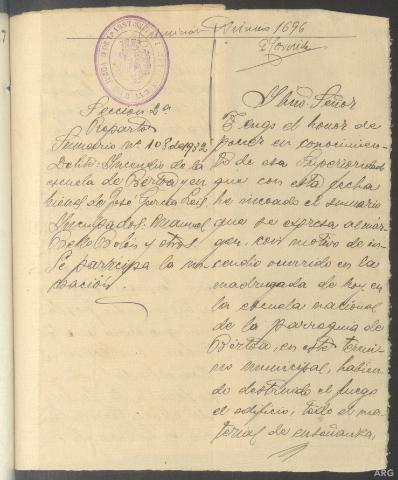 Sección 2ª
Reparto
Sumario nº 108 de 1932
Delito: Incendio de la
escuela de Bértoa y en
bienes de José García Rois.
Inculpados: Manuel
Bello Bolón y otros
Se participa la in-
coación.
Iltmo Señor
Tengo el honor de
poner en conocimien-
to de esa Superioridad
que con esta fecha
he incoado el sumario
que se expresa al már-
gen, con motivo de in-
cendio ocurrido en la
madrugada de hoy en
la escuela nacional
de la parroquia de
Bértoa, en este térmi-
no municipal, habien-
do destruido el fuego
el edificio, todo el ma-
terial de enseñanza,
ARG